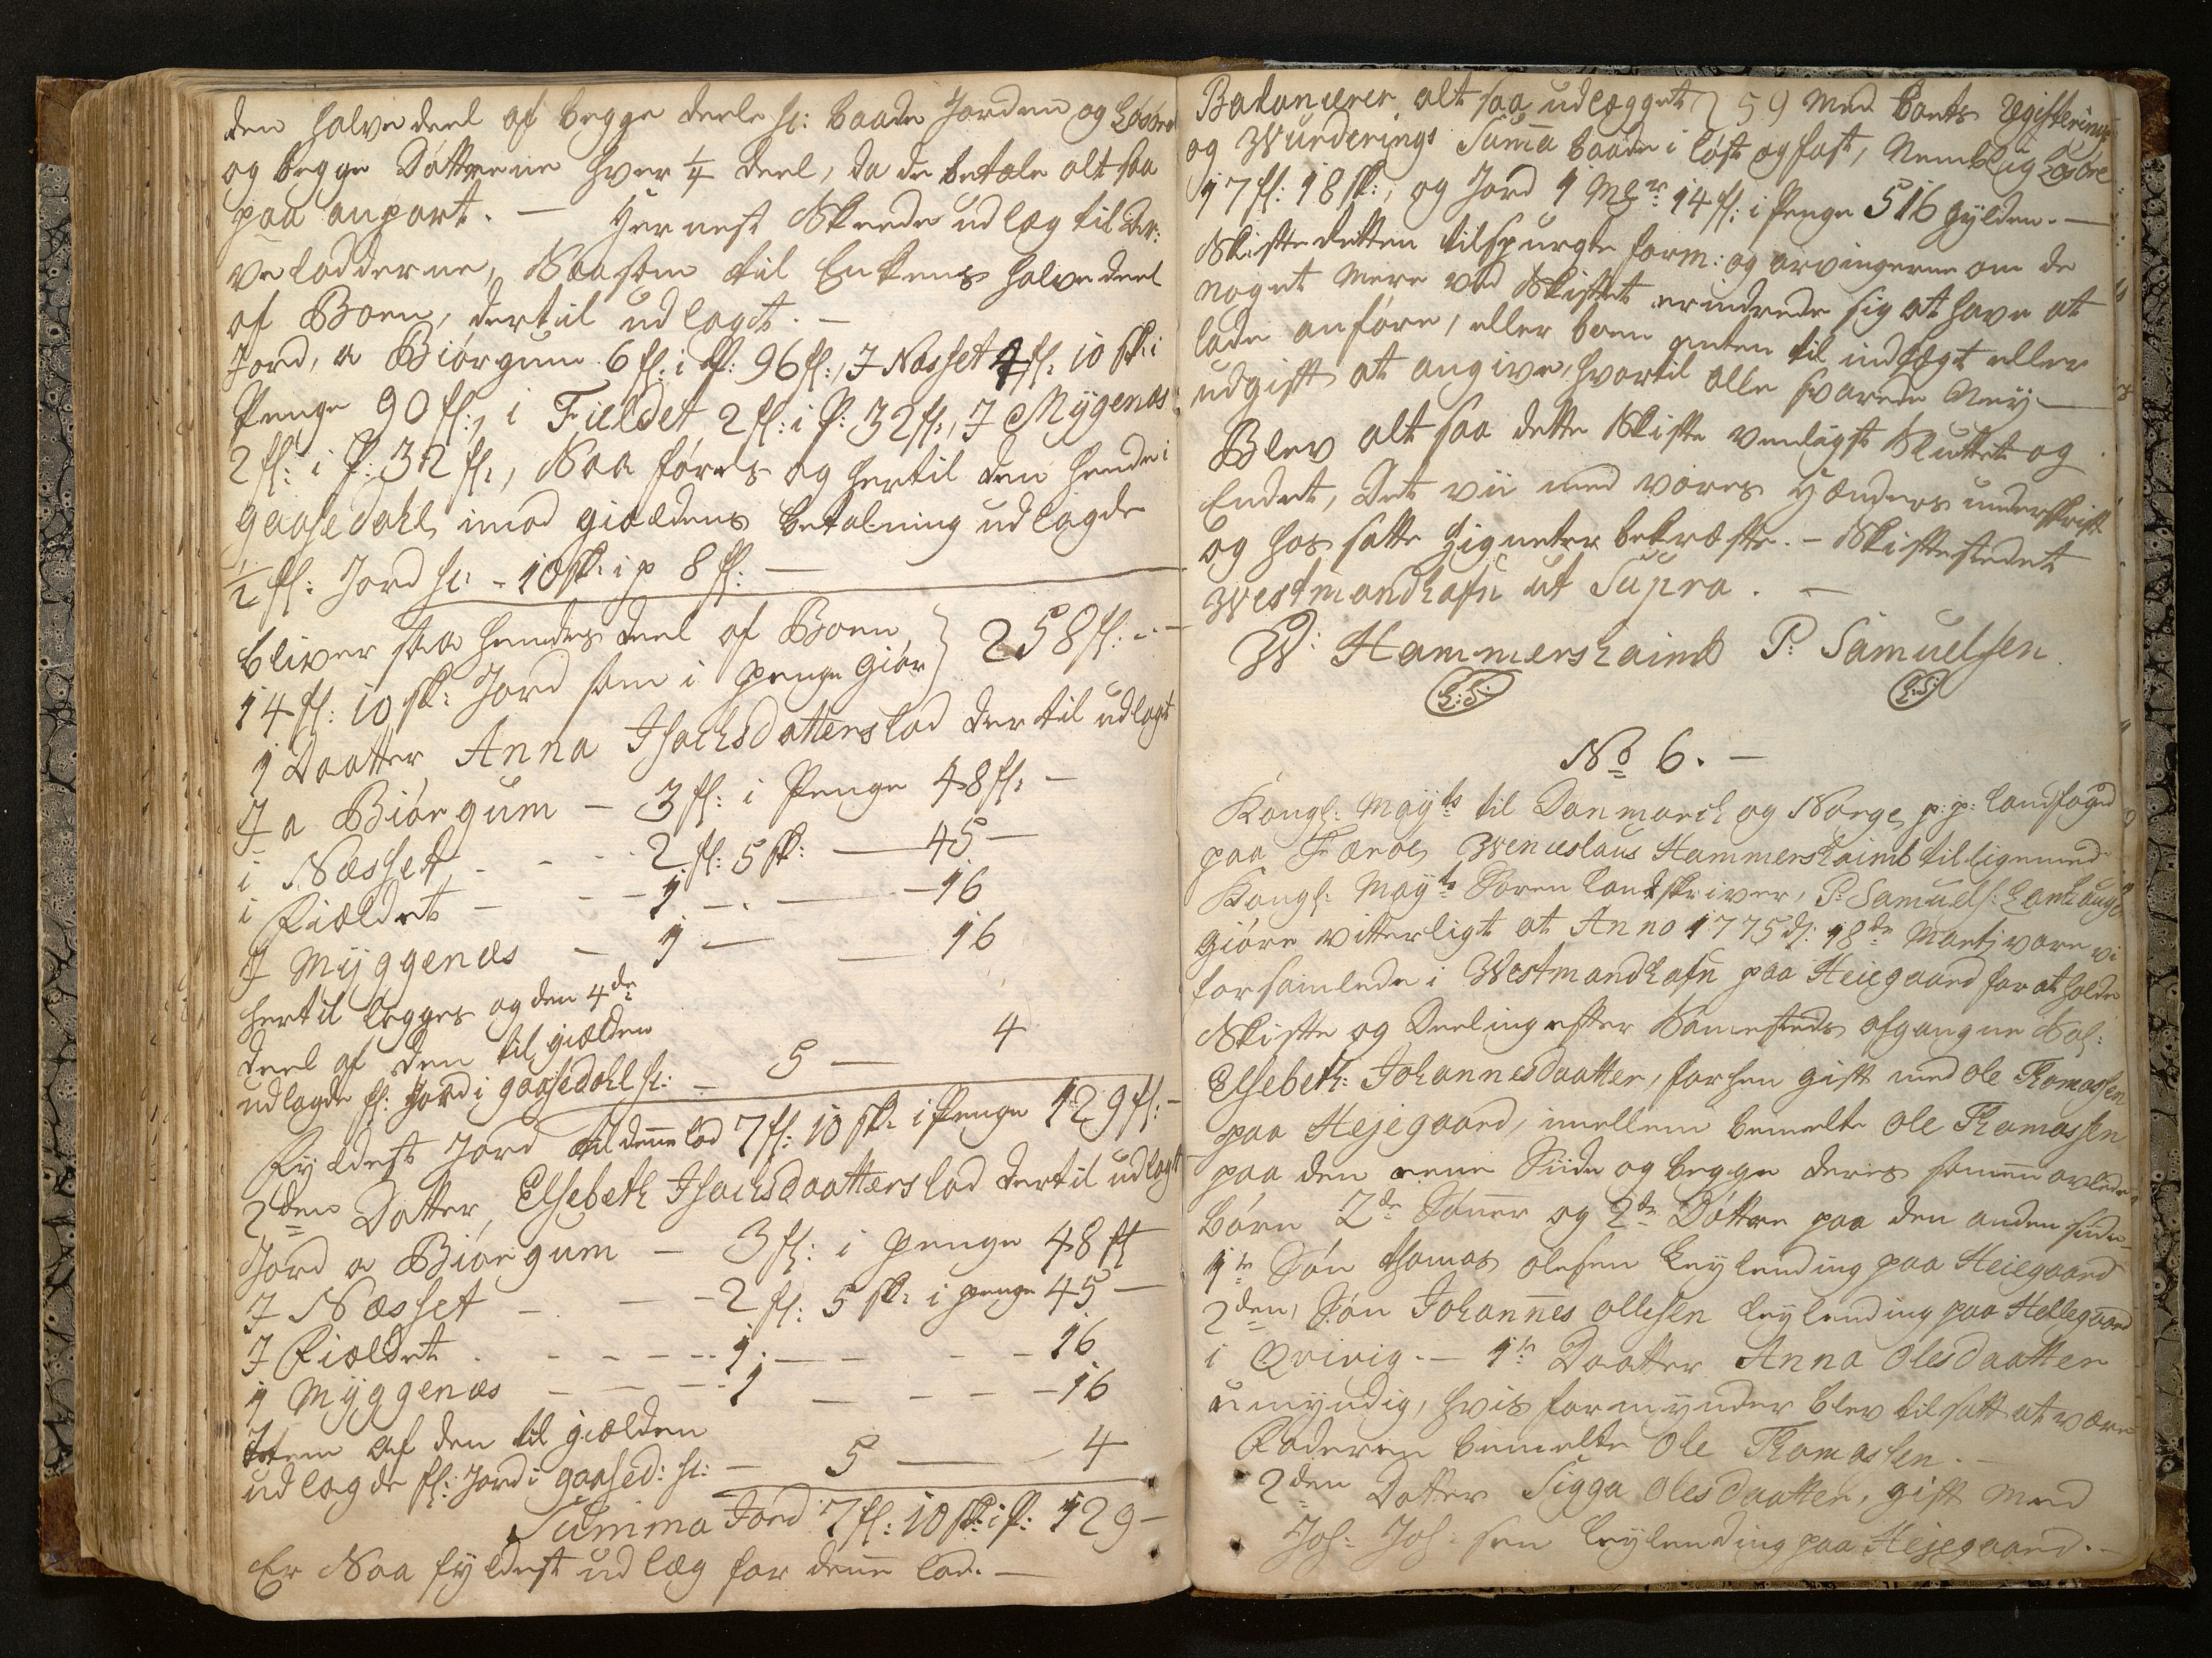 den halve deel af begge deele sc: baade Jorden og Løsøre
og begge Døttrene hver 1/4 deel, da de betale alt saa
paa anpart. — Hernest Skeede udlæg til Ar:
ve lodderne, Saasom til Enkens halve deel
af Boen, dertil udlagt. —
Jord, a Biørgum 6 fl: i P: 96 fl:, J Næsset 4 fl: 10 sk: i
Penge 90 fl:, i Fieldet 2 fl: i P: 32 fl:, J Mygenæs
2 fl: i P: 32 fl:, Saa føres og hertil den hende i
Gaasedahl imod giældens betalning udlagde
1/2 fl: Jord sc: - 10 sk: i p 8 fl: —
bliver saa hendes deel af Boen
14 fl: 10 sk: Jord som i penge giør } 258 fl: - -
1 Daatter Anna Isachsdatters lod dertil udlagt
J a Biørgum — 3 fl: i Penge 48 fl: —
i Næsset - - - 2 fl: 5 sk: — 45 —
i Fieldet — - - 1 - . — 16
J Myggenæs — 1 — — 16
hertil legges og den 4de
deel af den til giælden
udlagde fl: Jord i Gaasedahl sc: - 5 — 4
Fyldest Jord til denne lod 7 fl: 10 sk: i Penge 129 fl: —
2den Datter, Elsebeth Isachsdaatters lod dertil udlagt
Jord a Biørgum — 3 fl: i penge 48 fl
J Næsset - - - 2 fl: 5 sk: i penge 45 —
J Fieldet . - - - - 1. — - - 16
J Myggenæs — — - 1 — - - - 16
Item af den til giælden
udlagde fl: Jord i Gaased: sc: — 5 — 4
Summa Jord 7 fl: 10 sk: i P: 129 —
Er Saa fyldest udlæg for denne lod. —
Balancerer alt saa udlægget 59 med boets Registerings
og Wurderings Summa baade i løst og fast, Nemblig Løsøre
17 fl: 18 sk:, og Jord 1 Mk 14 fl: i Penge 516 gylden. —
Skifteretten tilspurgte form: og arvingerne om de
noget mere ved Skiftet erindrede sig at have at
lade anføre, eller boen enten til indtegt eller
udgift at angive, hvortil alle svarede Ney —
Blev alt saa dette Skifte venligst Sluttet og
Endet, Det vii med vores Hænders underskrift
og hos satte Zigneter bekræfte. — Skiftestedet
Westmandhafn ut Supra. —
W: Hammershaimb P: Samuelsen.
L:S: L:S:
No 6. —
Kongl: Mayts til Danmarck og Norge p: p: landfoged
paa Færøe, Wenceslaus Hammershaimb tilligemed
Kongl: Mayts Soren landskriver, P: Samuels: Lamhauge
giøre vitterligt at Anno 1775 d: 18de Martj vare vi
forsamlede i Westmandhafn paa Heiegaard for at holde
Skifte og Deeling efter Sammesteds afgangne Sal:
Elsebeth: Johannesdaatter, forhen gift med Ole Thomassen
paa Hejegaard, imellem bemelte Ole Thomassen
paa den eene Siide og begge deres sammen avlede
børn 2de Sønner og 2de Døttre paa den anden siide
1te Søn Thomas Olesen leylending paa Heiegaard
2den Søn Johannes Ollesen leylending paa Hellegaard
i Qvivig. — 1te Daatter Anna Olesdaatter
umyndig, hvis formynder blev tilsatt at være
Faderen bemelte Ole Thomassen. —
2den Datter Sigga Olesdaatter, gift med
Joh: Joh: sen leylending paa Hejegaard. —